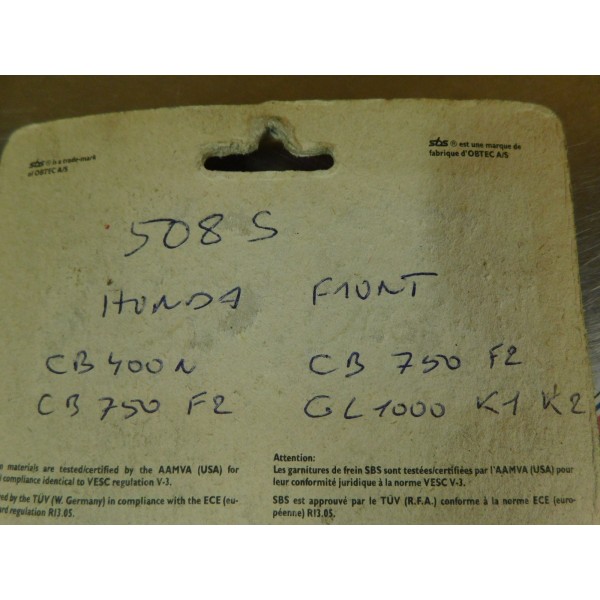 sbs ® is a trade-mark
of OBTEC A/S
sbs ® est une marque de
fabrique d'OBTEC A/S
508 S
HONDA FRONT
CB 400 N CB 750 F2
CB 750 F2 GL1000 K1 K2
materials are tested/certified by the AAMVA (USA) for
compliance identical to VESC regulation V-3.
by the TÜV (W. Germany) in compliance with the ECE (eu-
regulation R13.05.
Attention:
Les garnitures de frein SBS sont testées/certifiées par l'AAMVA (USA) pour
leur conformité juridique à la norme VESC V-3.
SBS est approuvé par le TÜV (R.F.A.) conforme à la norme ECE (euro-
péenne) R13.05.